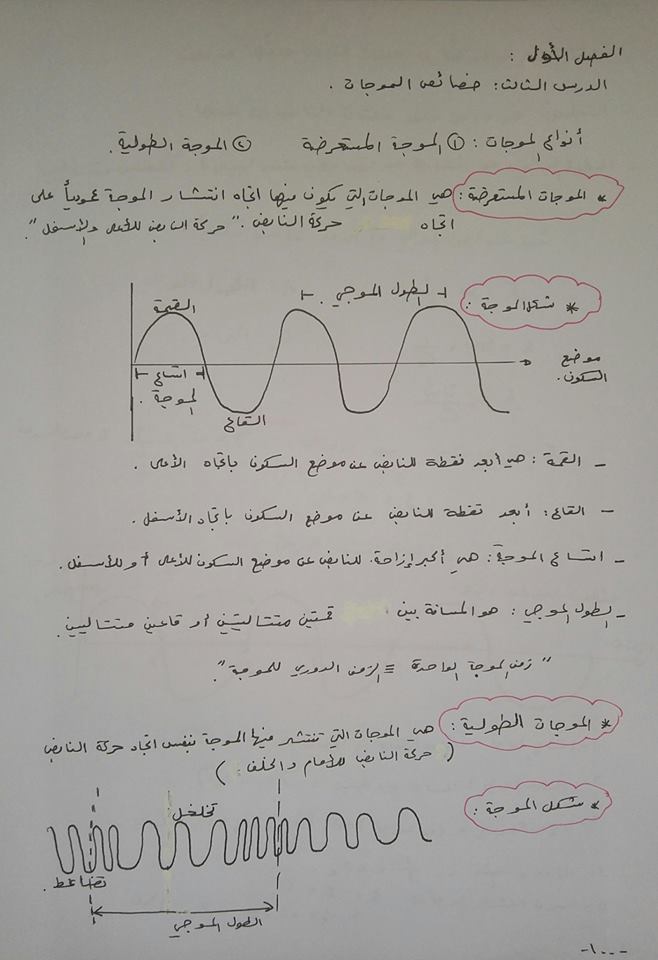 الفصل الأول :
الدرس الثالث: خصائص الموجات .
أنواع الموجات : ① الموجة المستعرضة ② الموجة الطولية .
* الموجات المستعرضة : هي الموجات التي يكون فيها اتجاه انتشار الموجة عمودياً على
اتجاه حركة النابض . " حركة النابض للأعلى والأسفل " .
* شكل الموجة :
الطول الموجي .
القمة
موضع السكون .
اتساع الموجة .
القاع
- القمة : هي أبعد نقطة للنابض عن موضع السكون باتجاه الأعلى .
- القاع : أبعد نقطة للنابض عن موضع السكون باتجاه الأسفل .
- اتساع الموجة : هي أكبر إزاحة للنابض عن موضع السكون للأعلى أو للأسفل .
- الطول الموجي : هو المسافة بين قمتين متتاليتين أو قاعين متتاليين .
" زمن الموجة الواحدة ≡ الزمن الدوري للموجة " .
* الموجات الطولية : هي الموجات التي تنتشر فيها الموجة بنفس اتجاه حركة النابض
( حركة النابض للأمام والخلف . )
* شكل الموجة :
تخلخل
تضاغط .
الطول الموجي
-١٠٠-